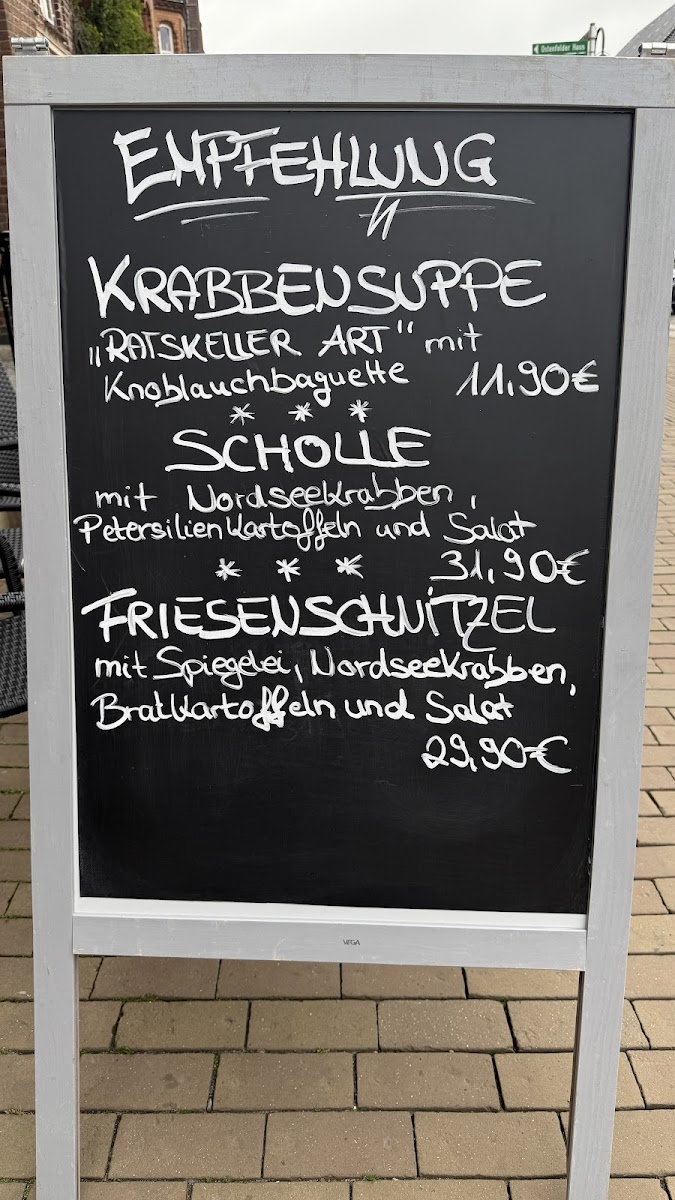 Ostenfelder Haus
EMPFEHLUNG
KRABBENSUPPE
„RATSKELLER ART“ mit
Knoblauchbaguette 11,90€
* * *
SCHOLLE
mit Nordseekrabben,
Petersilienkartoffeln und Salat
* * * 31,90€
FRIESENSCHNITZEL
mit Spiegelei, Nordseekrabben,
Bratkartoffeln und Salat
29,90€
VEGA